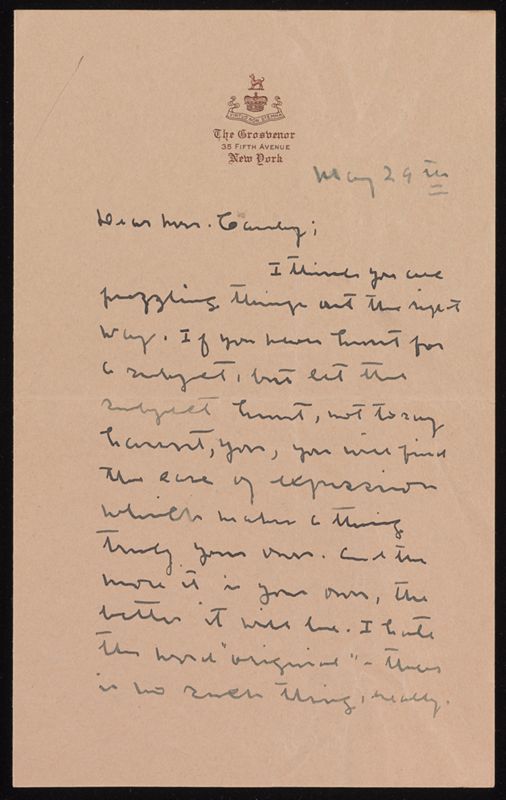 VIRTUS NON STEMMA
The Grosvenor
35 FIFTH AVENUE
New York
May 29th
Dear Mrs. Canby;
I think you are
puzzling things out the right
way. If you never hunt for
a subject, but let the
subject hunt, not to say
haunt, you, you will find
the ease of expression
which makes a thing
truly your own. And the
more it is your own, the
better it will be. I hate
the word "original" – there
is no such thing, really.